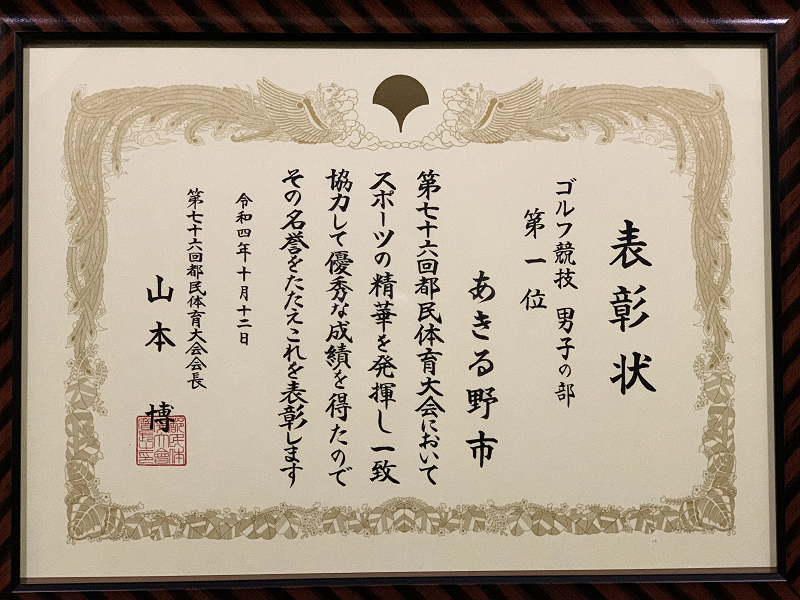 表彰状
ゴルフ競技 男子の部
第一位
あきる野市
第七十六回都民体育大会において
スポーツの精華を発揮し一致
協力して優秀な成績を得たので
その名誉をたたえこれを表彰します
令和四年十月十二日
第七十六回都民体育大会会長
山本 博